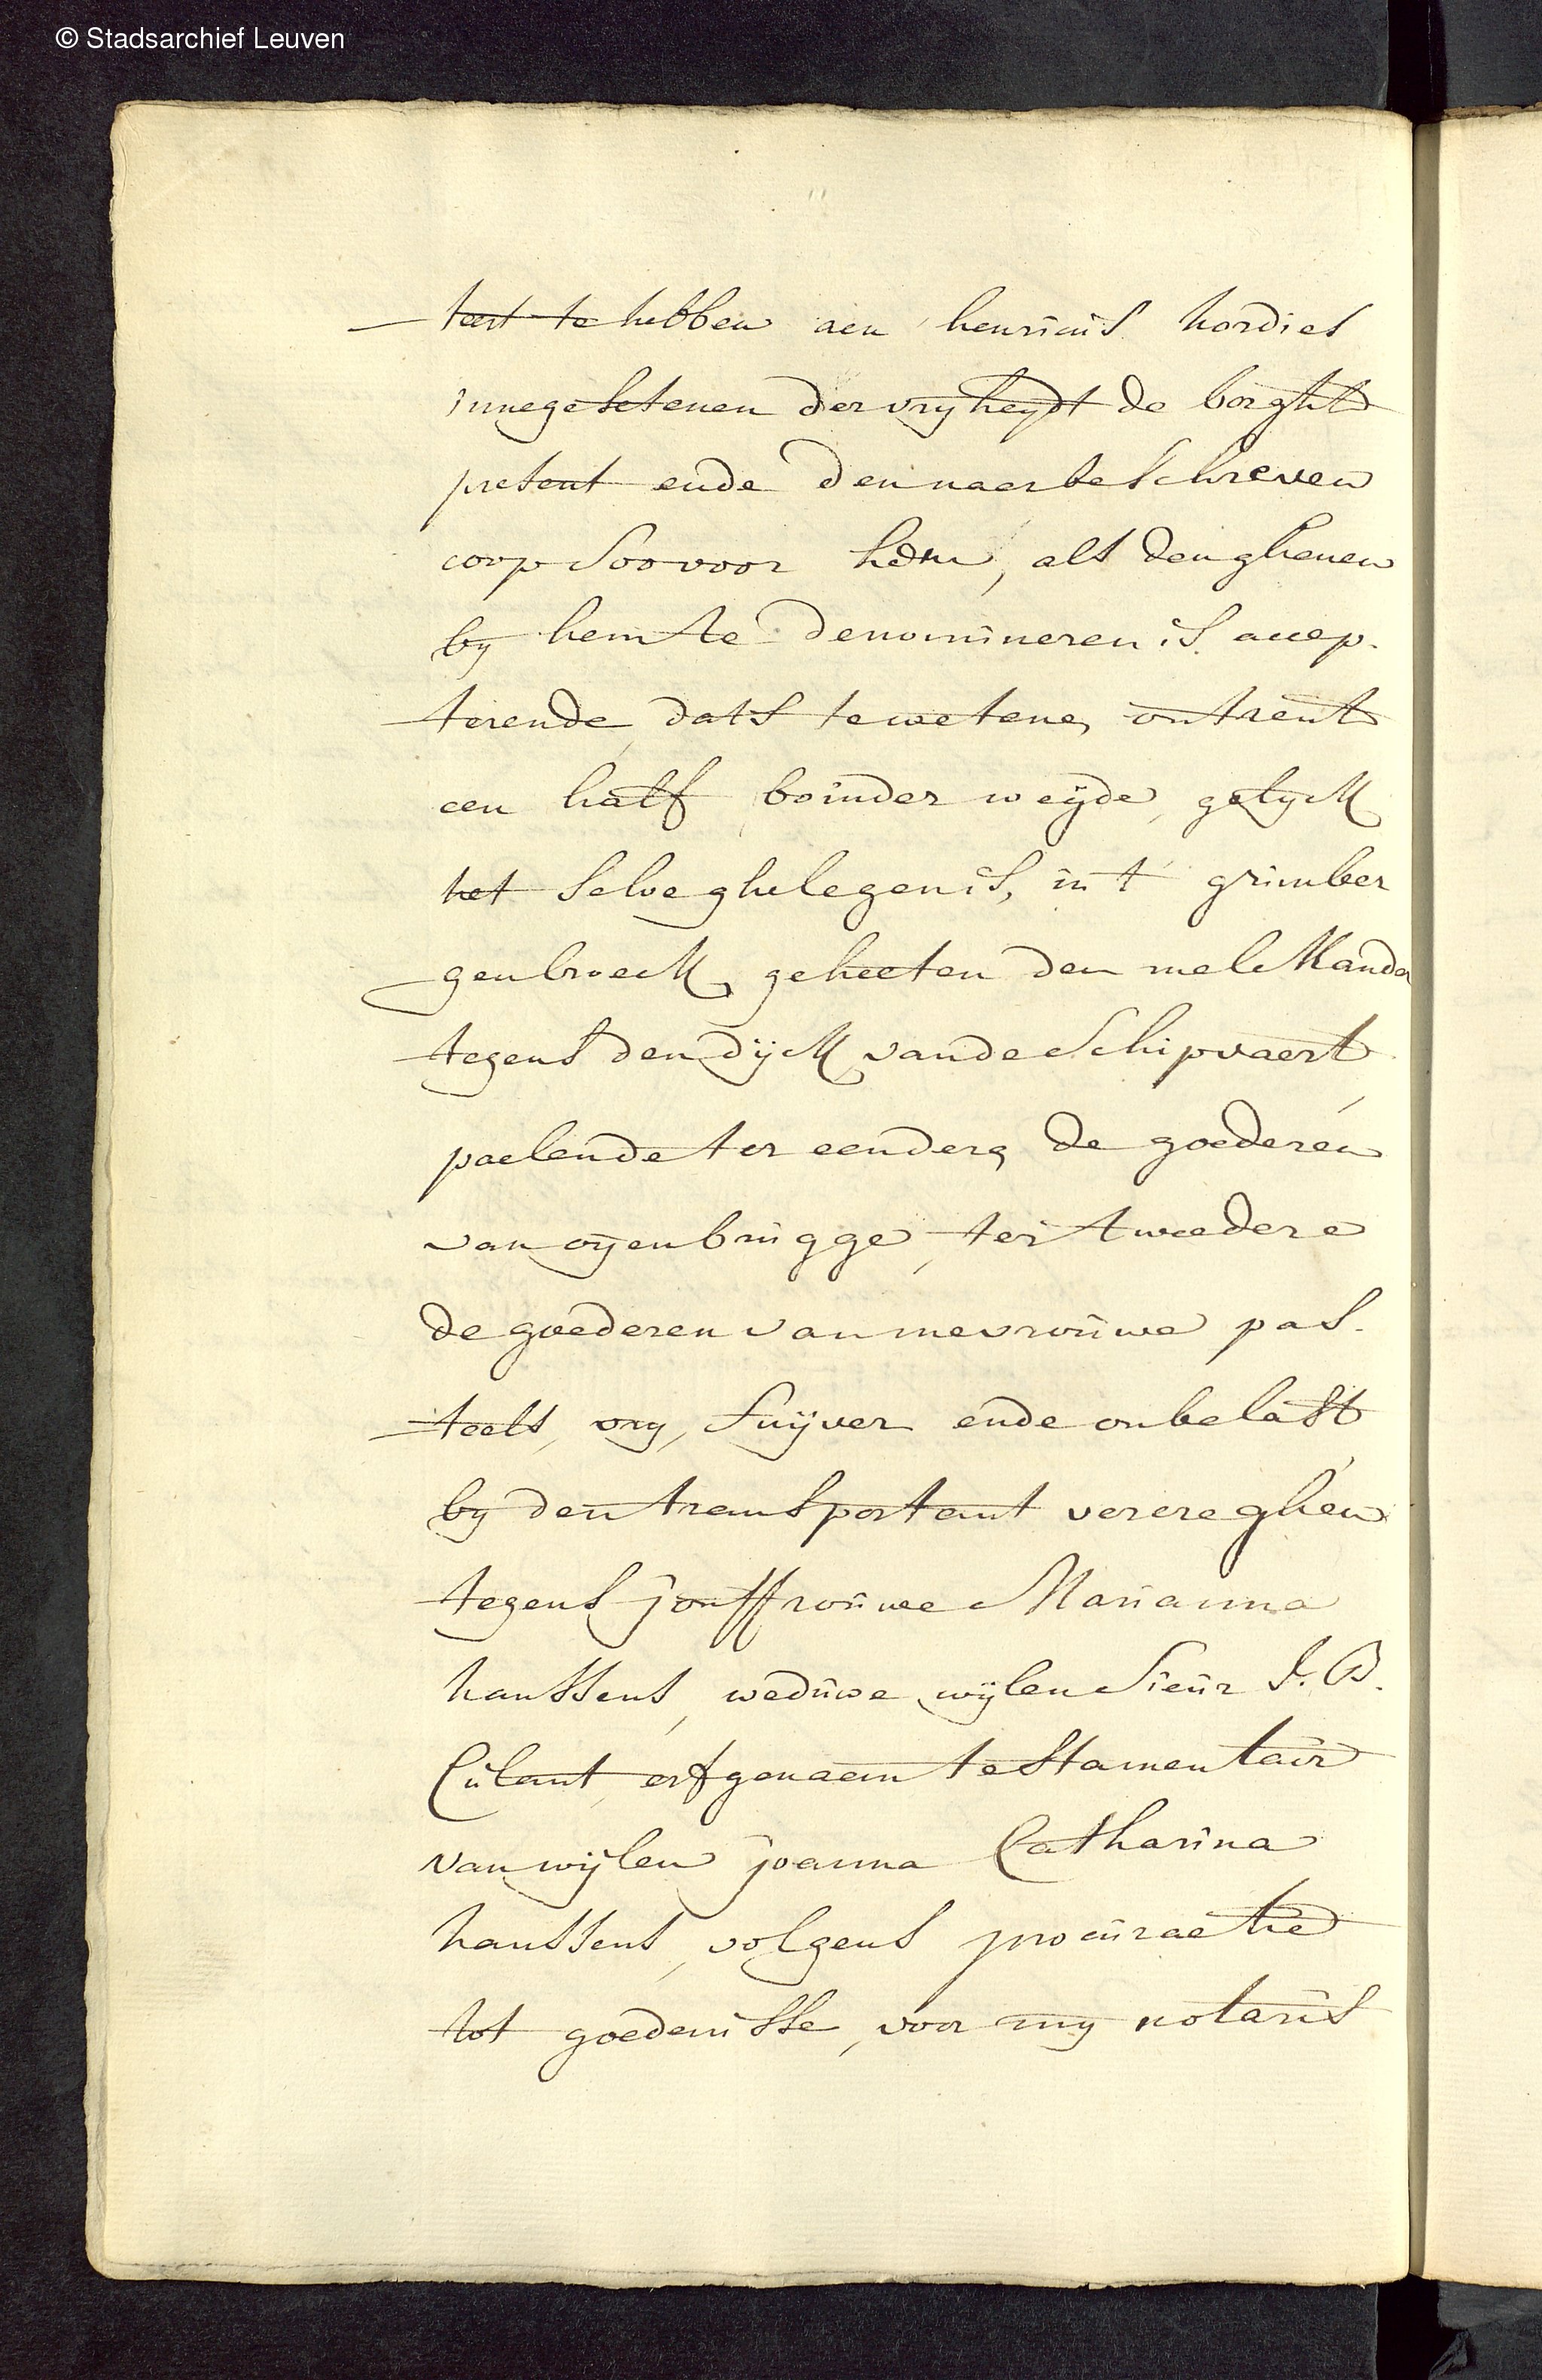 © Stadsarchief Leuven
teert te hebben aen henricus hordies
innegesetenen der vryheydt de borght
present ende den naerbeschreven
coop soo voor hem, als den ghenen
by hem te denomineren is accep-
terende, dats te wetene, ontrent
een half boinder weyde, gelyck
het selve ghelegen is, in 't grimber
genbroeck geheeten den melckande
tegens den dyck vande schipvaert
paelende ter eendere de goederen
van oyenbrugge, ter tweedere
de goederen van mevrouwe pas-
teels, vry, suyver ende onbelast
by den transportant vercreghen
tegens jouffrouwe Marianna
hanssens, weduwe wylen sieur J. B.
Culant, erfgenaem testamentair
van wylen joanna Catharina
hanssens, volgens procuraetie
tot goedenisse, voor my notaris